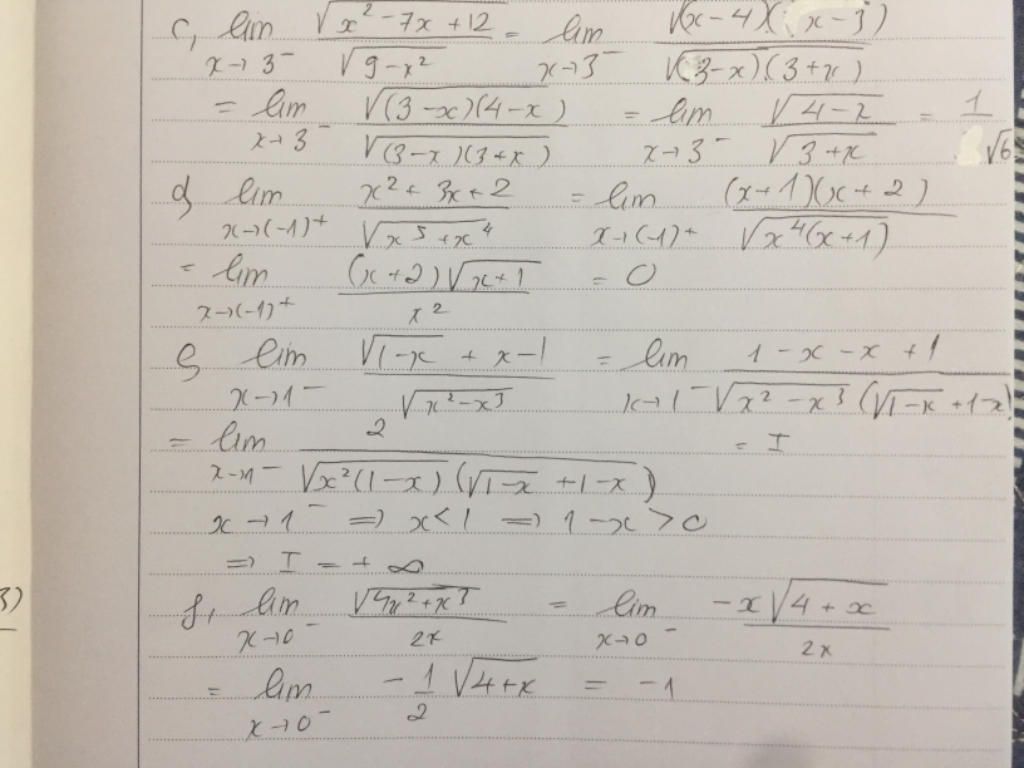 c, lim x→3⁻ √(x²-7x+12) / √(9-x²) = lim x→3⁻ √((x-4)(x-3)) / √((3-x)(3+x))
= lim x→3⁻ √((3-x)(4-x)) / √((3-x)(3+x)) = lim x→3⁻ √(4-x) / √(3+x) = 1/√6
d, lim x→(-1)⁺ (x²+3x+2) / √(x⁵+x⁴) = lim x→(-1)⁺ (x+1)(x+2) / √(x⁴(x+1))
= lim x→(-1)⁺ (x+2)√(x+1) / x² = 0
e, lim x→1⁻ (√(1-x) + x-1) / √(x²-x³) = lim x→1⁻ (1-x-x+1) / (√(x²-x³) (√(1-x) +1-x))
= lim x→1⁻ 2 / (√(x²(1-x)) (√(1-x) +1-x)) = I
x→1⁻ ⇒ x<1 ⇒ 1-x>0
⇒ I = +∞
3)
f, lim x→0⁻ √(4x²+x³) / 2x = lim x→0⁻ -x√(4+x) / 2x
= lim x→0⁻ -1/2 √(4+x) = -1